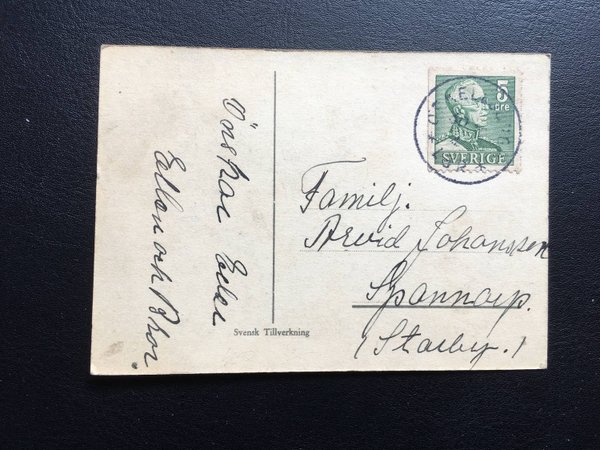 Önskar Eder
Ellen och Thor.
Svensk Tillverkning
5
öre
SVERIGE
Familj.
Arvid Johansson
Spannarp.
(Starby.)